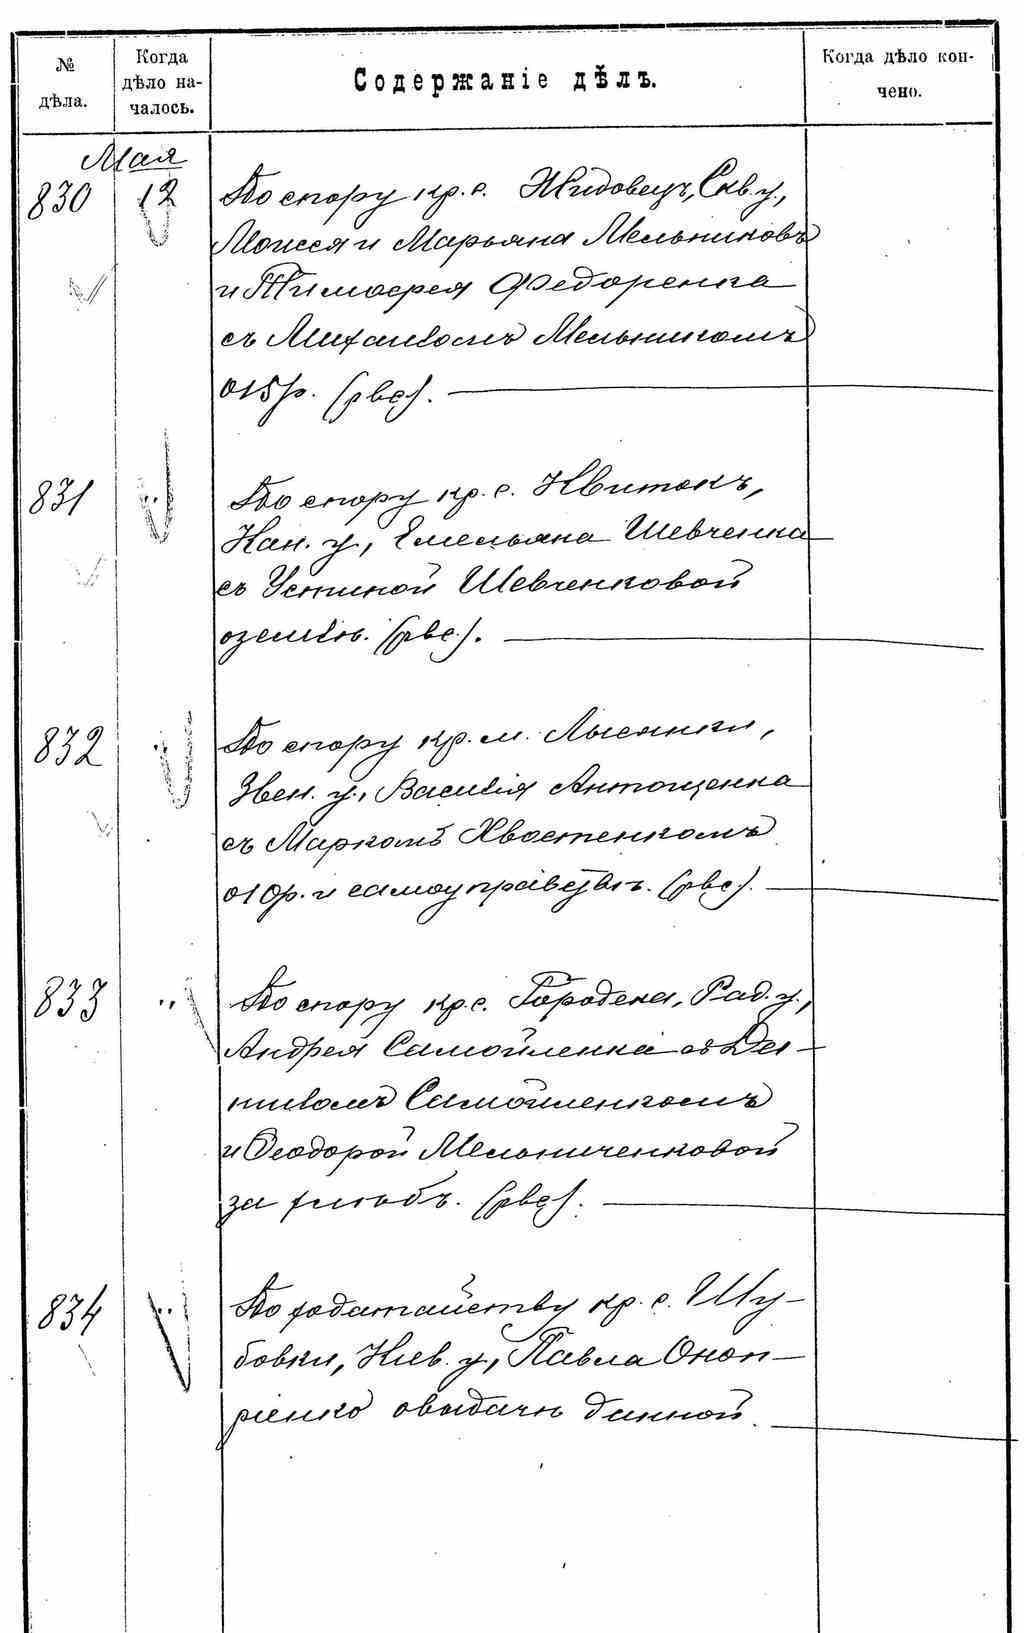 № дѣла.
Когда дѣло на-
чалось.
Содержаніе дѣлъ.
Когда дѣло кон-
чено.
Мая
830 12 По спору кр. с. Жидовецъ, Скв. у.,
Моисея и Марьяна Мельниковъ
и Тимофея Федоренка
съ Михаиломъ Мельникомъ
о 15 р. (рвс).
831 " По спору кр. с. Квитокъ,
Кан. у., Емельяна Шевченка
съ Устиной Шевченковой
о землѣ. (рвс).
832 " По спору кр. м. Лысянки,
Звен. у., Василія Антощенка
съ Маркомъ Хвостенкомъ
о 10 р. и самоуправствѣ. (рвс).
833 " По спору кр. с. Городска, Рад. у.,
Андрея Самойленка съ Да-
ниломъ Самойленкомъ
и Ѳеодорой Мельниченковой
за хлѣбъ. (рвс).
834 " По ходатайству кр. с. Шу-
бовки, Кіев. у., Павла Оноп-
ріенко о выдачѣ данной.